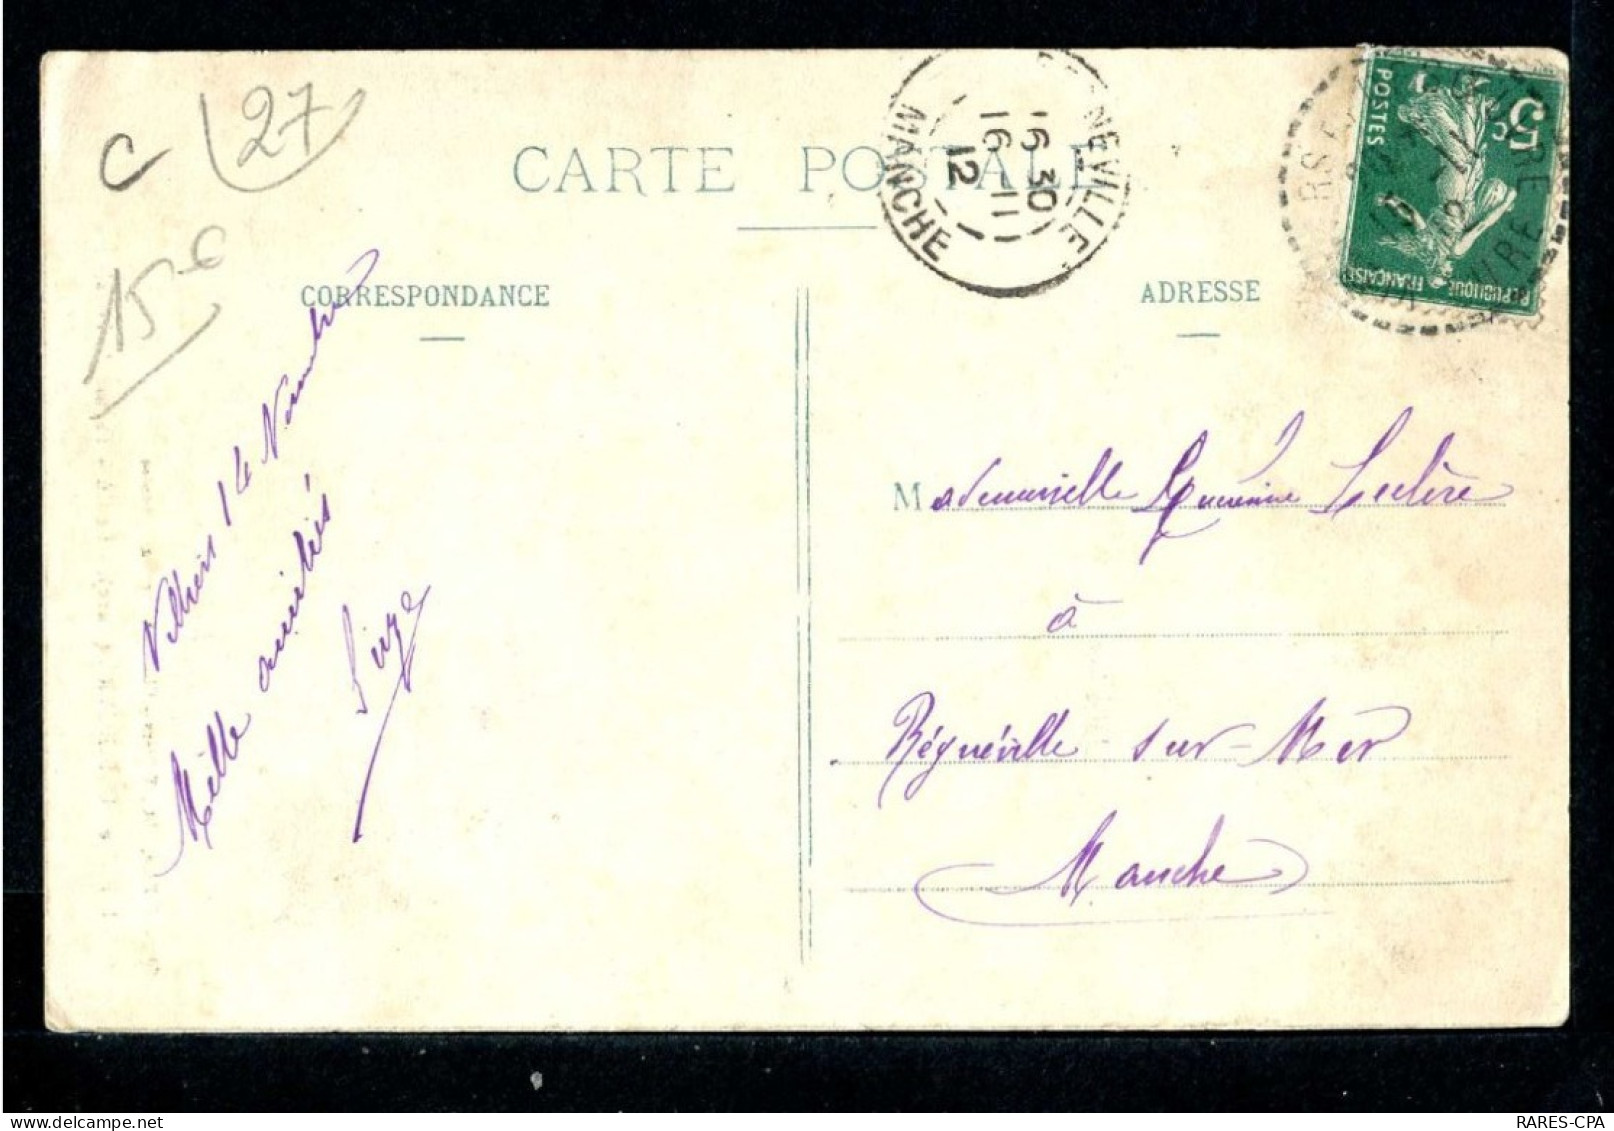 C 27
15 €
CARTE POSTALE
CORRESPONDANCE
ADRESSE
NEVILLE
16 30
16 - 11
12
MANCHE
5c
POSTES
REPUBLIQUE FRANÇAISE
Villiers 14 Novembre
Mille amitiés
Suze
Mademoiselle Leclère
à
Régnéville-sur-Mer
Manche
RARES-CPA